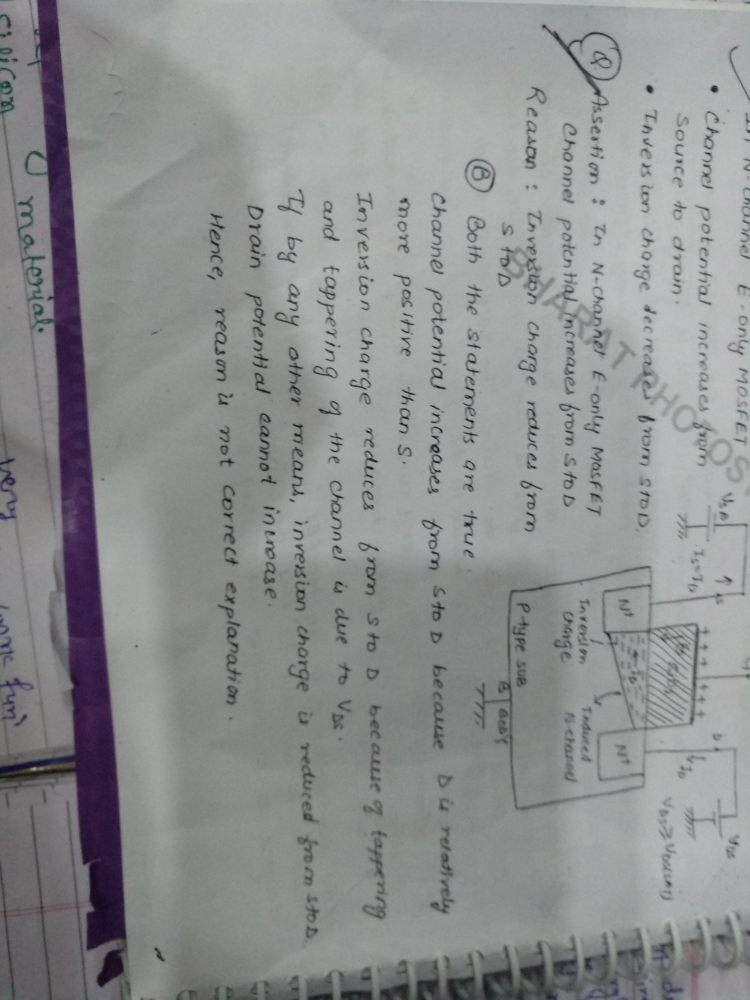 In N-channel E-only MOSFET
• Channel potential increases from
Source to drain.
• Inversion charge decreases from S to D.
Q Assertion : In N-channel E-only MOSFET
Channel potential increases from S to D
Reason : Inversion charge reduces from
S to D
B Both the statements are true.
Channel potential increases from S to D because D is relatively
more positive than S.
Inversion charge reduces from S to D because of tappering
and tappering of the channel is due to VDS.
If by any other means, inversion charge is reduced from S to D
Drain potential cannot increase.
Hence, reason is not correct explanation.
BHARAT PHOTOS
IS = ID
+ + + +
+ + +
N+
N+
ID
VDS
VDS ≥ VDS(sat)
Inversion
charge
Induced
N-channel
P-type SUB
B
BODY
silicon
material.
very